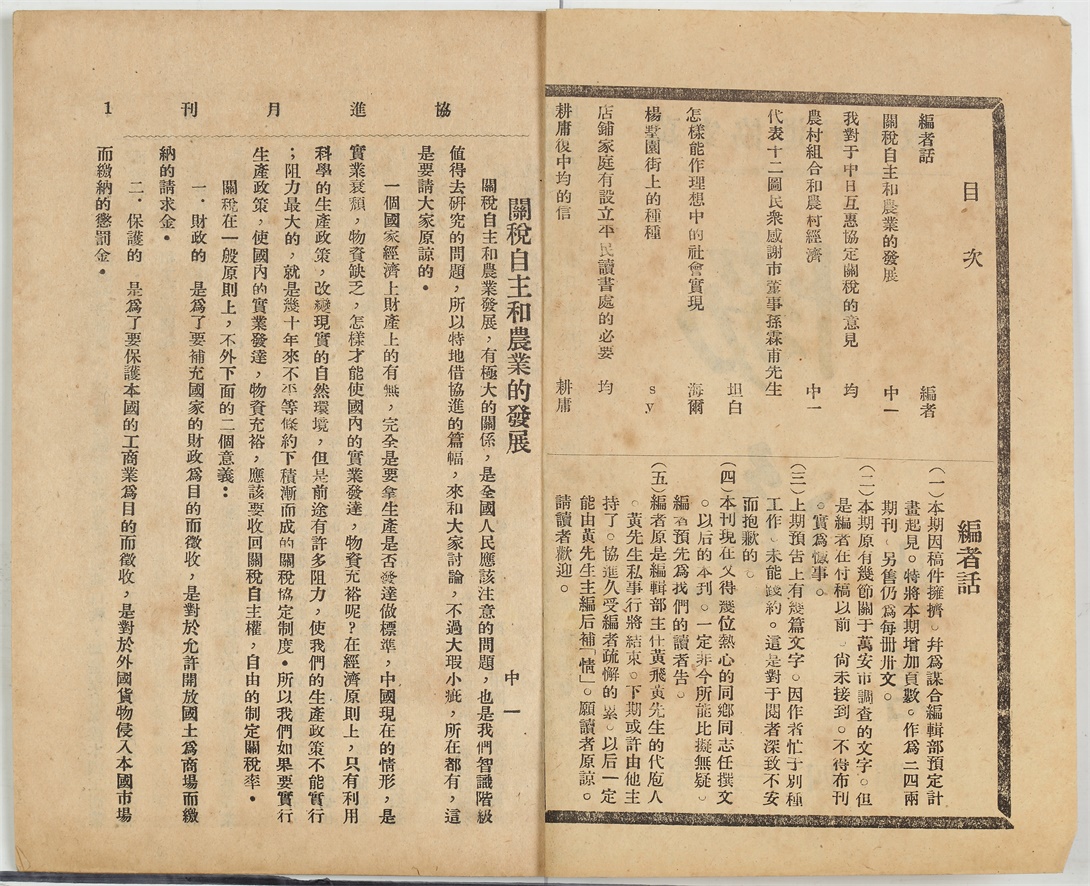 目次
編者話　編者
關稅自主和農業的發展　中一
我對于中日互惠協定關稅的意見　均
農村組合和農村經濟　中一
代表十二圖民衆感謝市董事孫霖甫先生
坦白
怎樣能作理想中的社會實現　海爾
楊墅園街上的種種　sy
店鋪家庭有設立平民讀書處的必要　均
耕庸復中均的信　耕庸
編者話
(一)本期因稿件擁擠。幷爲謀合編輯部預定計
畫起見。特將本期增加頁數。作爲二四兩
期刊、另售仍爲每冊卅文。
(二)本期原有幾節關于萬安市調查的文字。但
是編者在付稿以前、尙未接到。不得布刊
。實爲憾事。
(三)上期預告上有幾篇文字。因作者忙于別種
工作、未能踐約。這是對于閱者深致不安
而抱歉的。
(四)本刊現在又得幾位熱心的同鄉同志任撰文
。以后的本刊。一定非今所能比擬無疑。
編者預先爲我們的讀者告。
(五)編者原是編輯部主任黃飛黄先生的代庖人
。黃先生私事行將結束。下期或許由他主
持了。協進久受編者疏懈的累。以后一定
能由黃先生主編后補「情」。願讀者原諒。
請讀者歡迎。
協進月刊　1
關稅自主和農業的發展
中一
關稅自主和農業發展，有極大的關係，是全國人民應該注意的問題，也是我們智識階級
値得去硏究的問題，所以特地借協進的篇幅，來和大家討論，不過大瑕小疵，所在都有，這
是要請大家原諒的。
一個國家經濟上財產上的有無，完全是要拿生產是否發達做標準，中國現在的情形，是
實業衰頹，物資缺乏，怎樣才能使國內的實業發達，物資充裕呢？在經濟原則上，只有利用
科學的生產政策，改變現實的自然環境，但是前途有許多阻力，使我們的生產政策不能實行
；阻力最大的，就是幾十年來不平等條約下積漸而成的關稅協定制度。所以我們如果要實行
生產政策，使國內的實業發達，物資充裕，應該要收回關稅自主權，自由的制定關稅率。
關稅在一般原則上，不外下面的二個意義：
一、財政的　是爲了要補充國家的財政爲目的而徵收，是對於允許開放國土爲商場而繳
納的請求金。
二、保護的　是爲了要保護本國的工商業爲目的而徵收，是對於外國貨物侵入本國市場
而繳納的懲罰金。